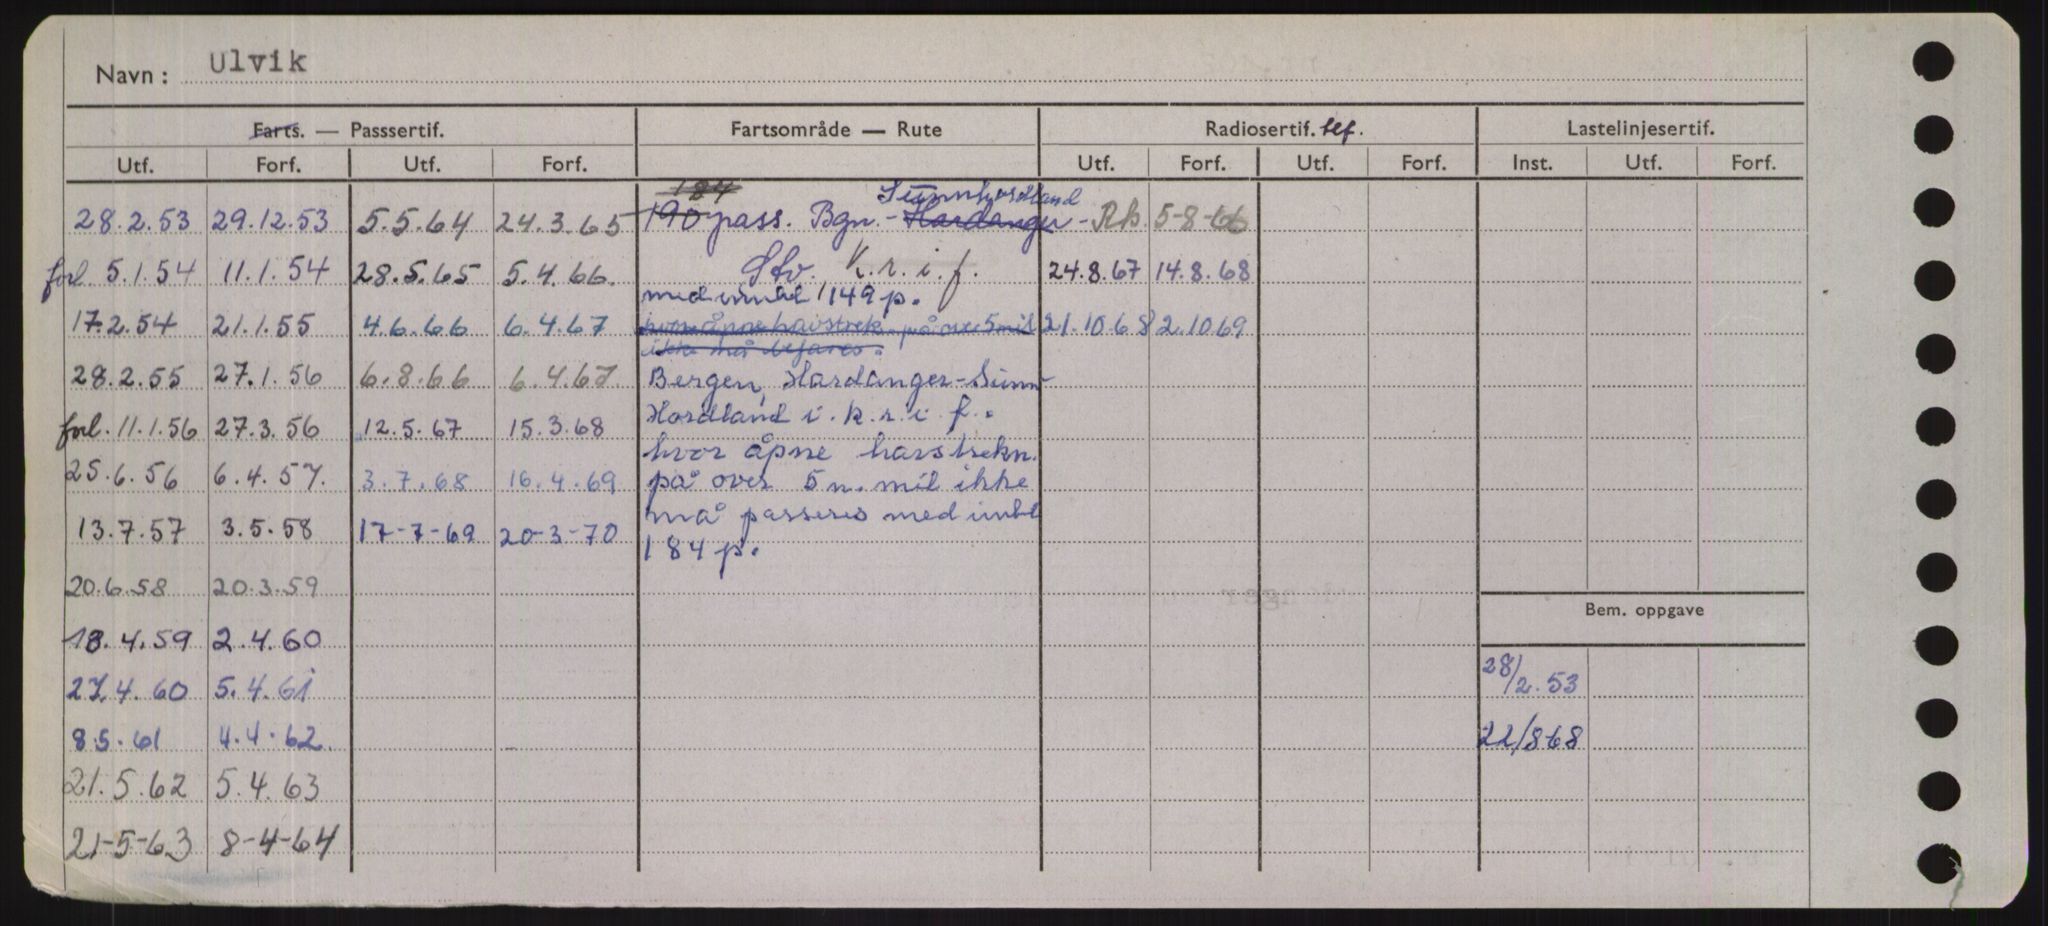 Navn: Ulvik
Farts. — Passsertif. Fartsområde — Rute Radiosertif. tlf. Lastelinjesertif.
Utf. Forf. Utf. Forf. Utf. Forf. Utf. Forf. Inst. Utf. Forf.
184 Sunnhordland
28.2.53 29.12.53 5.5.64 24.3.65 190 pass. Bgn. - Hardanger - 5-8-66
forl. 5.1.54 11.1.54 28.5.65 5.4.66. Stv. K.r.i.f. 24.8.67 14.8.68
med inntil 149 p.
17.2.54 21.1.55 4.6.66 6.4.67 hvor åpne havstrek. på over 5 mil 21.10.68 2.10.69
ikke må befares.
28.2.55 27.1.56 6.8.66 6.4.67. Bergen, Hardanger-Sunn-
Hordland i. k.r.i.f.
forl. 11.1.56 27.3.56 12.5.67 15.3.68
hvor åpne havstrekn.
25.6.56 6.4.57. 3.7.68 16.4.69 på over 5 n. mil ikke
må passeres med inntil
13.7.57 3.5.58 17-7-69 20-3-70 184 p.
20.6.58 20.3.59
Bem. oppgave
18.4.59 2.4.60
27.4.60 5.4.61 28/2.53
8.5.61 4.4.62. 22/8 68
21.5.62 5.4.63
21-5-63 8-4-64